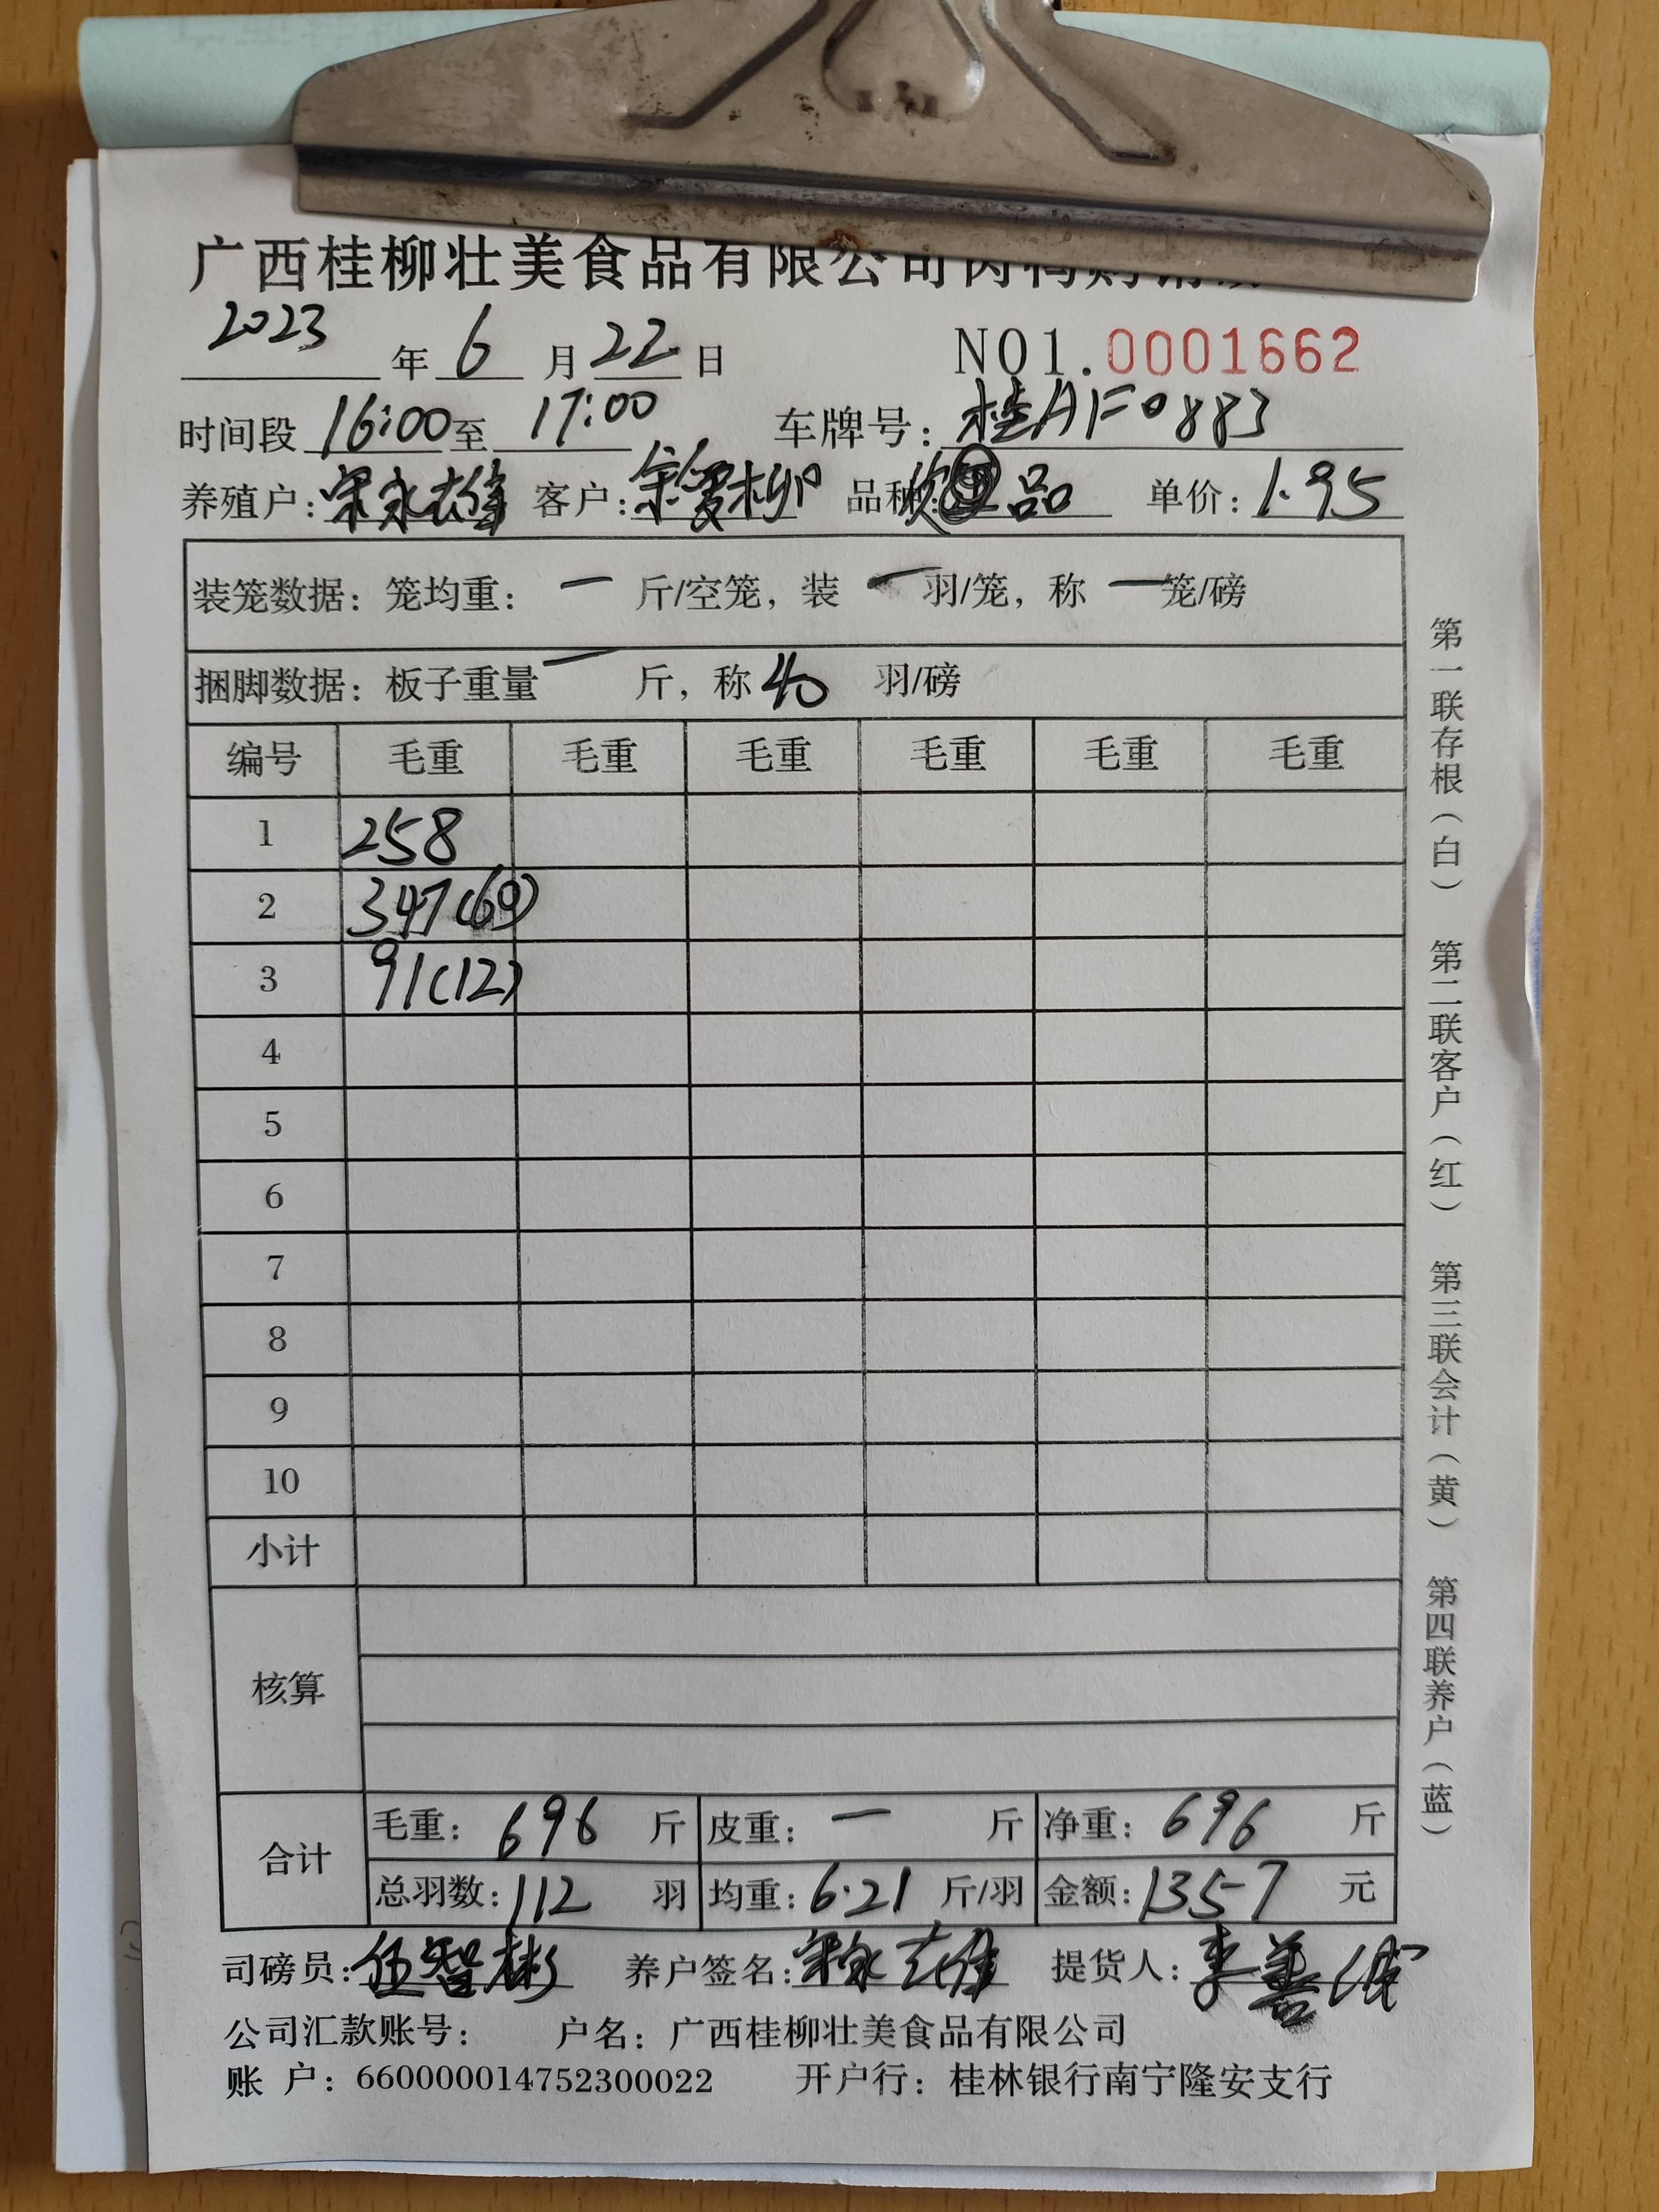 广西桂柳壮美食品有限公司肉鸭购销
2023年6月22日 NO1.0001662
时间段16:00至17:00 车牌号：桂AF0883
养殖户：宋永雄 客户：余爱柳 品种：次品 单价：1.95
装笼数据：笼均重：一斤/空笼，装一羽/笼，称一笼/磅
捆脚数据：板子重量一斤，称40羽/磅
编号 毛重 毛重 毛重 毛重 毛重 毛重
1 258
2 347(60)
3 91(12)
4
5
6
7
8
9
10
小计
核算
合计 毛重：696斤 皮重：一斤 净重：696斤
总羽数：112羽 均重：6.21斤/羽 金额：1357元
司磅员：伍智彬 养户签名：宋永雄 提货人：李善
公司汇款账号： 户名：广西桂柳壮美食品有限公司
账户：660000014752300022 开户行：桂林银行南宁隆安支行
第一联存根（白） 第二联客户（红） 第三联会计（黄） 第四联养户（蓝）